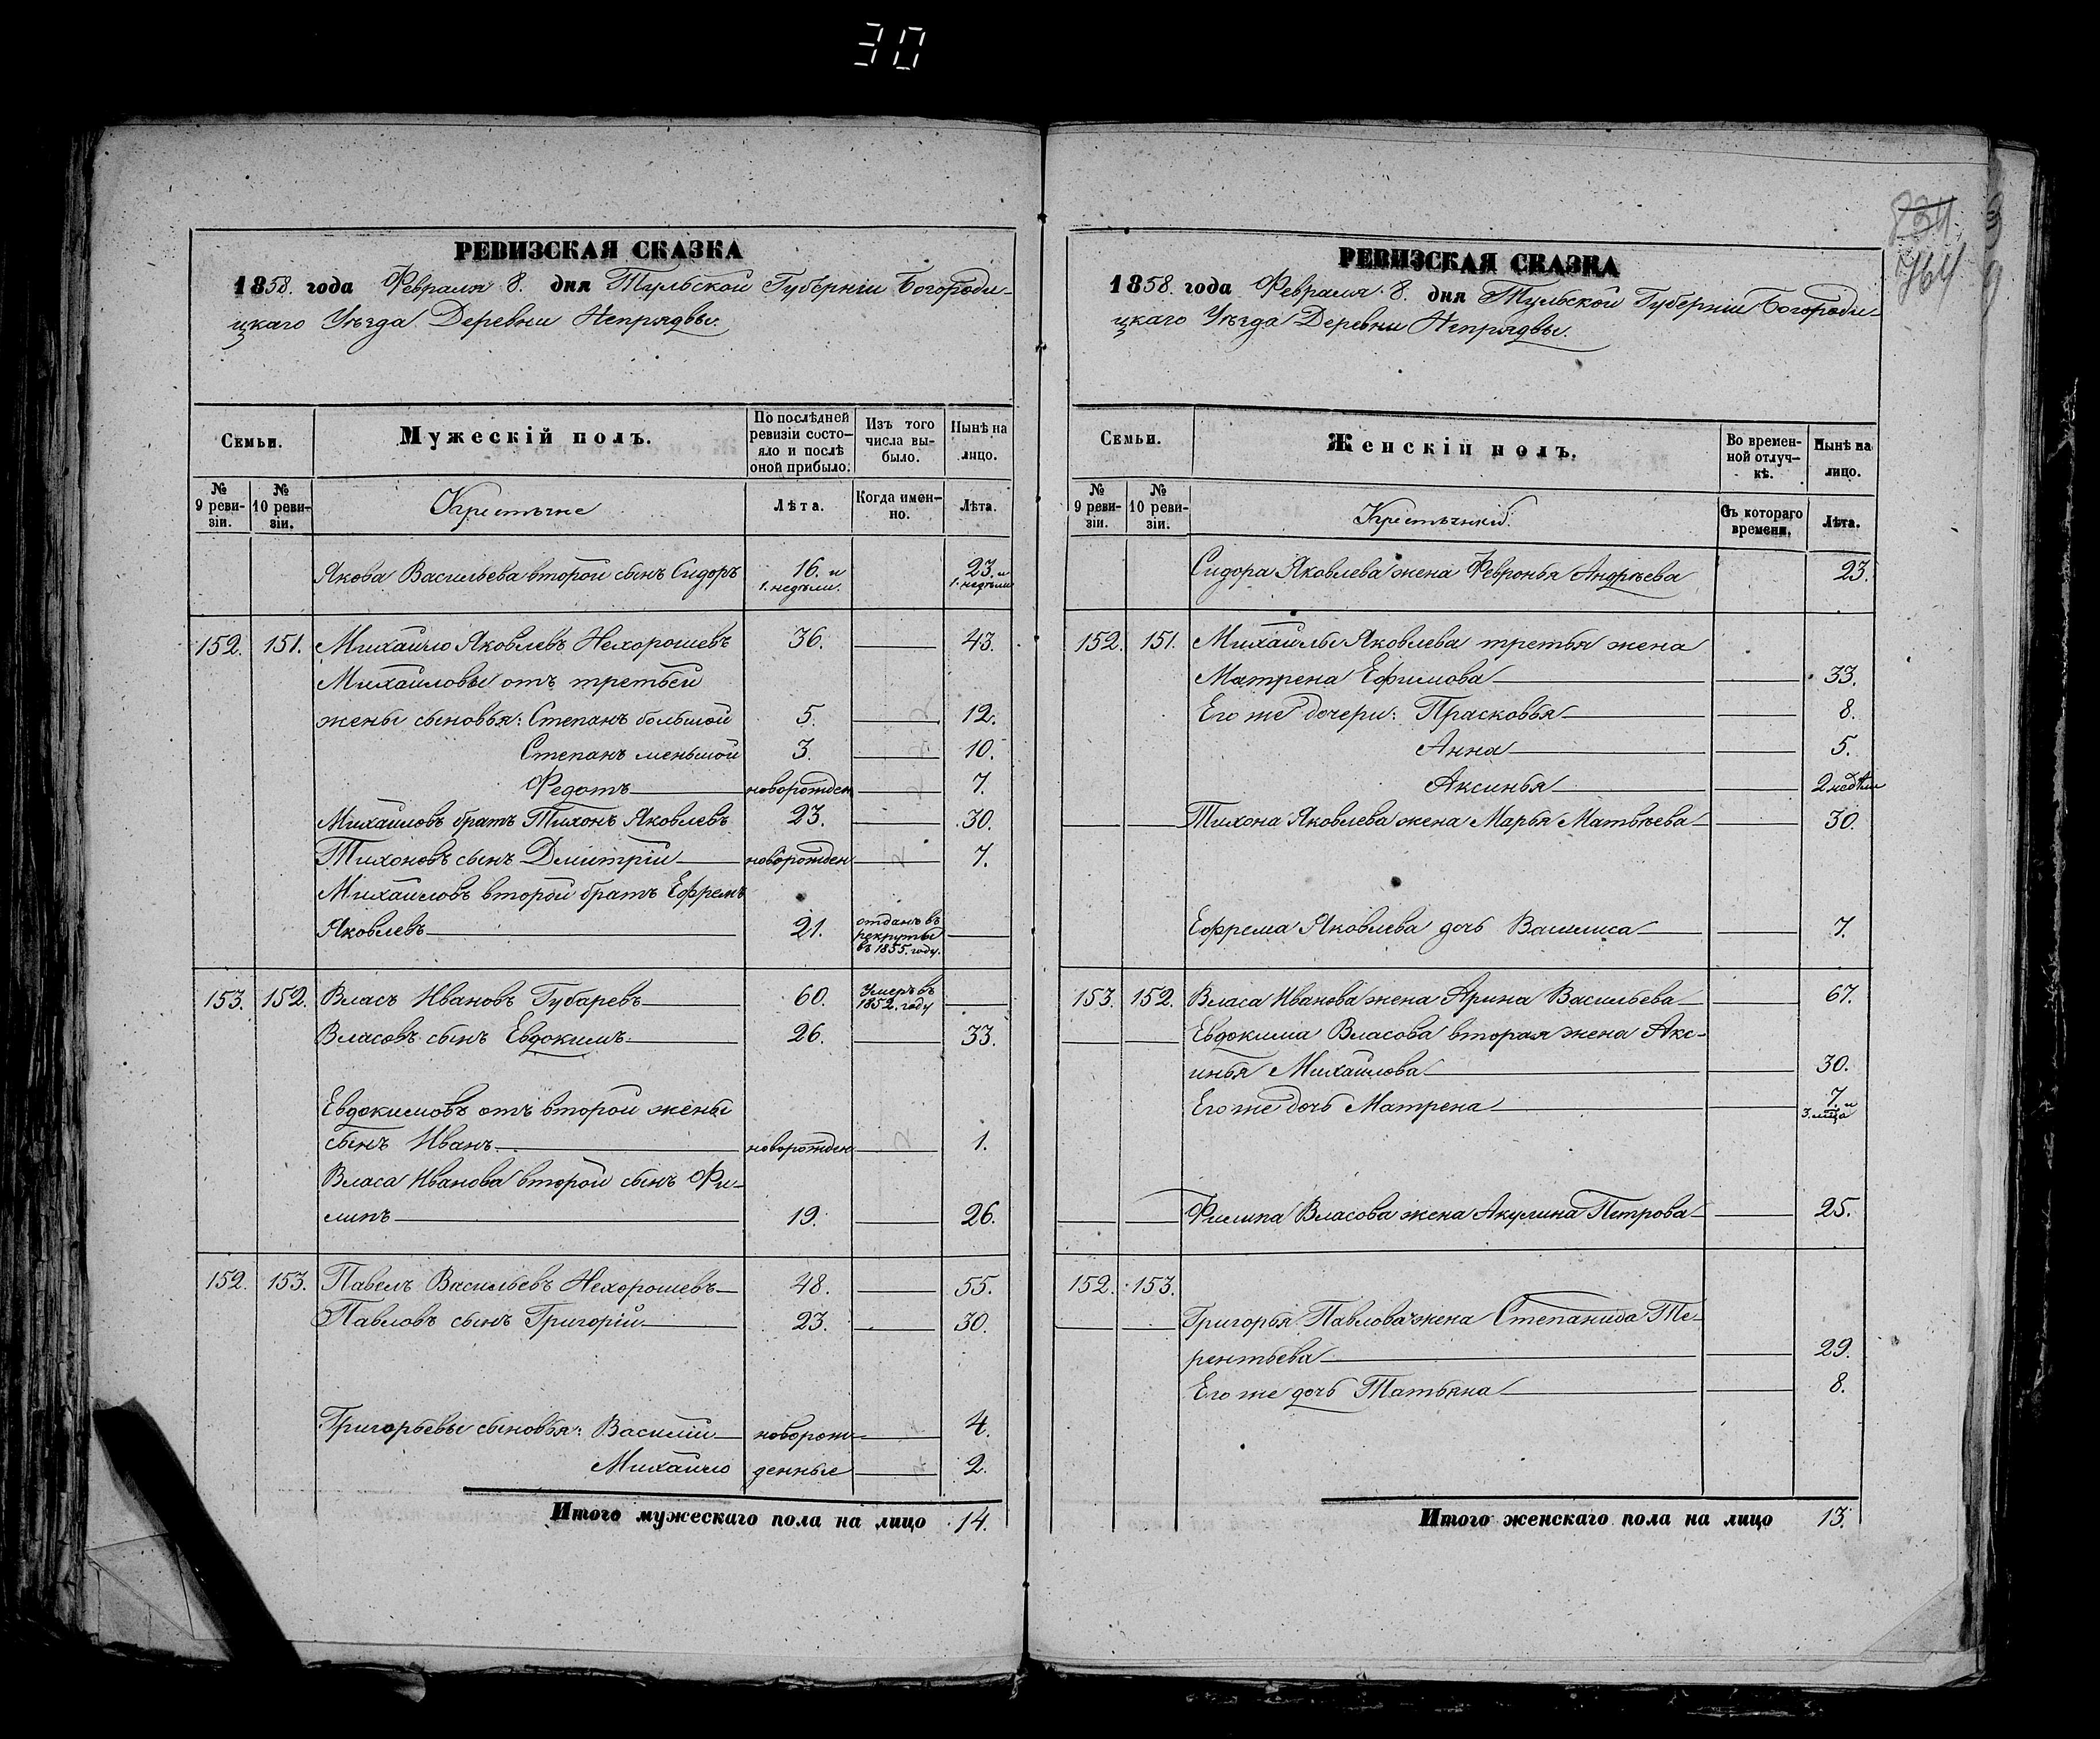 30
РЕВИЗСКАЯ СКАЗКА
1858. года Февраля 8. дня Тульской Губерніи Богороди-
цкаго Уѣзда Деревни Непрядвы.
Семьи.
Мужескій полъ.
По послѣдней ревизіи состо-яло и послѣ оной прибыло.
Изъ того числа вы-было.
Нынѣ на лицо.
№ 9 реви-зіи.
№ 10 реви-зіи.
Крестьяне
Лѣта.
Когда имен-но.
Лѣта.
Якова Васильева второй сынъ Сидоръ 16. и 1. недѣли. 23. и 1. недѣли
152. 151. Михайло Яковлевъ Нехорошевъ 36. 43.
Михайловы отъ третьей
жены сыновья: Степанъ большой 5. 12.
Степанъ меньшой 3. 10.
Федотъ новорожден 7.
Михайловъ братъ Тихонъ Яковлевъ 23. 30.
Тихоновъ сынъ Дмитрій новорожден 7.
Михайловъ второй братъ Ефремъ
Яковлевъ 21. отданъ въ рекруты въ 1855. году.
153. 152. Власъ Ивановъ Губаревъ 60. Умеръ въ 1852. году
Власовъ сынъ Евдокимъ 26. 33.
Евдокимовъ отъ второй жены
сынъ Иванъ новорожден 1.
Власа Иванова второй сынъ Фи-
липъ 19. 26.
152. 153. Павелъ Васильевъ Нехорошевъ 48. 55.
Павловъ сынъ Григорій 23. 30.
Григорьевы сыновья: Василій новорож- 4.
Михайло денные 2.
Итого мужескаго пола на лицо 14.
834.
764
РЕВИЗСКАЯ СКАЗКА
1858. года Февраля 8. дня Тульской Губерніи Богороди-
цкаго Уѣзда Деревни Непрядвы.
Семьи.
Женскій полъ.
Во времен-ной отлуч-кѣ.
Нынѣ на лицо.
№ 9 реви-зіи.
№ 10 реви-зіи.
Крестьянки.
Съ котораго времени.
Лѣта.
Сидора Яковлева жена Февронья Андреева 23.
152. 151. Михайлы Яковлева третья жена
Матрена Ефимова 33.
Его же дочери: Прасковья 8.
Анна 5.
Аксинья 2 недѣли
Тихона Яковлева жена Марья Матвѣева 30.
Ефрема Яковлева дочь Василиса 7.
153. 152. Власа Иванова жена Арина Васильева 67.
Евдокима Власова вторая жена Акс-
инья Михайлова 30.
Его же дочь Матрена 7. и 3. мѣца
Филипа Власова жена Акулина Петрова 25.
152. 153.
Григорья Павлова жена Степанида Те-
рентьева 29.
Его же дочь Татьяна 8.
Итого женскаго пола на лицо 13.